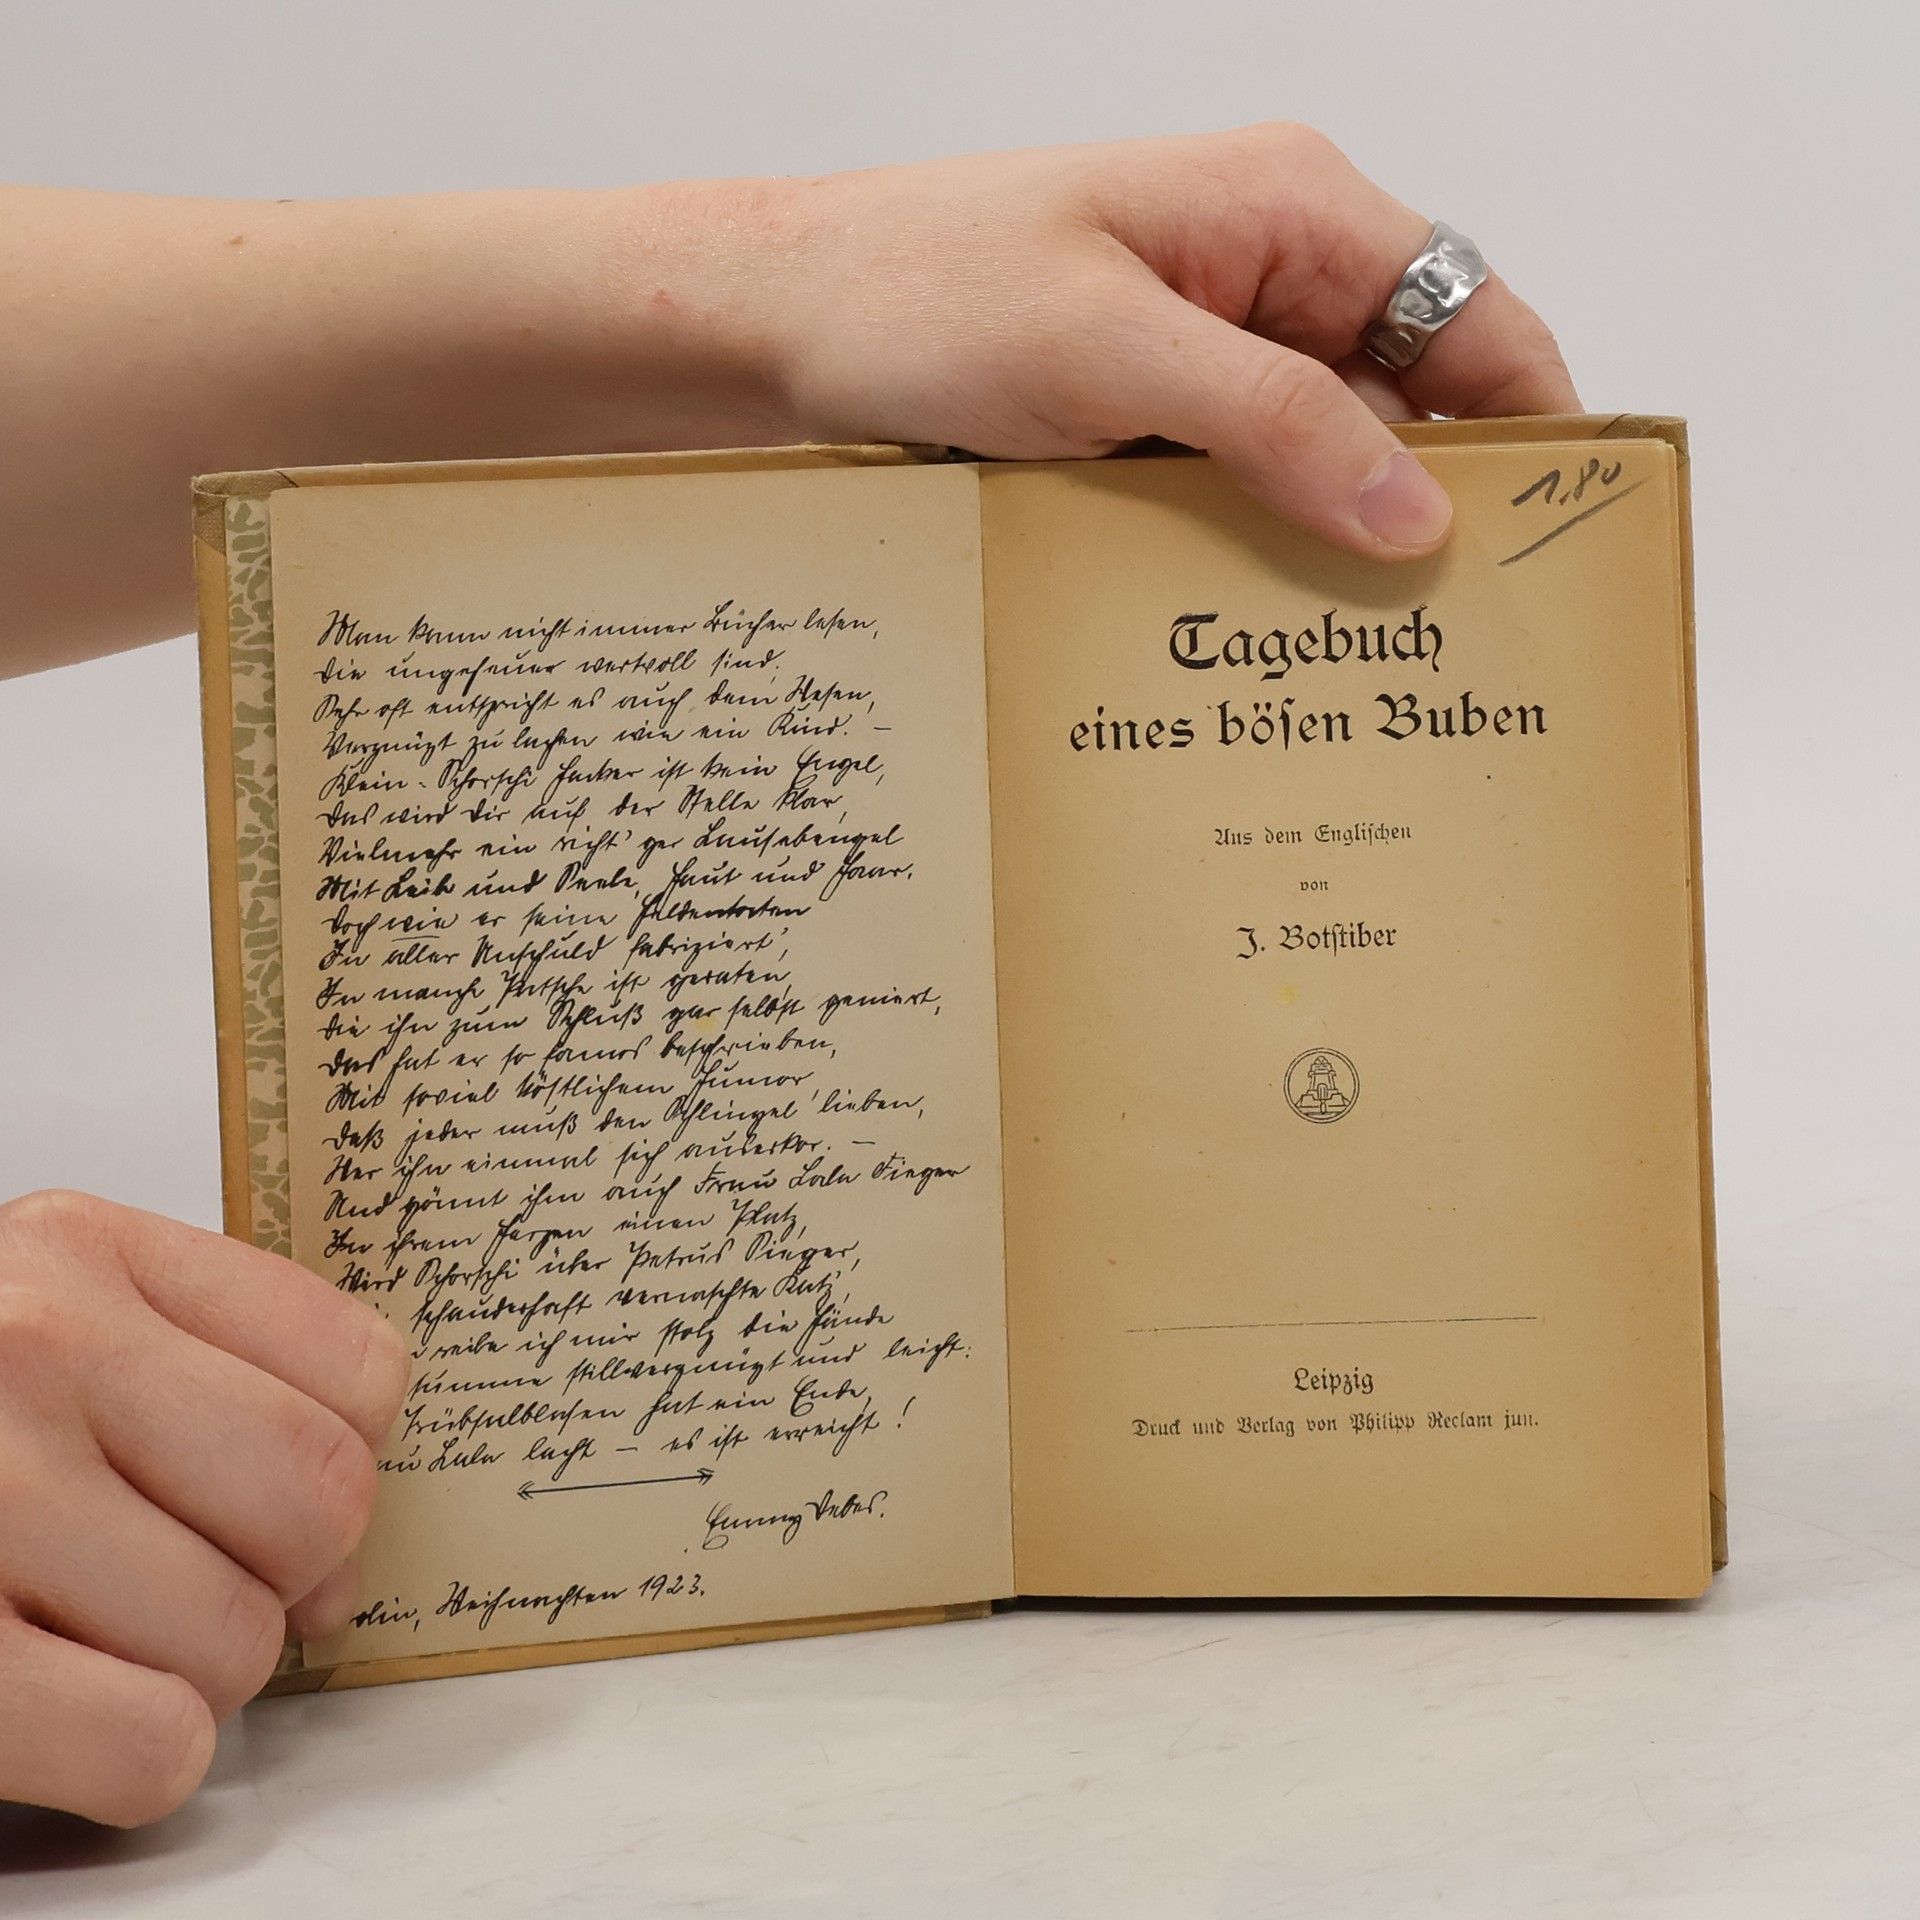 Man kann nicht immer Bücher lesen,
die ungeheuer wertvoll sind.
Sehr oft entspricht es auch dem Wesen,
Vergnügt zu lachen wie ein Kind. –
Klein-Schorschi Hacker ist kein Engel,
das wird dir auf der Stelle klar,
Vielmehr ein richt'ger Lausebengel
Mit Leib und Seele, Haut und Haar.
Doch wie er seine Heldentaten
In aller Unschuld fabriziert',
In manche Patsche ist geraten,
die ihn zum Schluß gar selbst geniert,
das hat er so famos beschrieben,
Mit soviel köstlichem Humor,
daß jeder muß den Schlingel lieben,
Wer ihn einmal sich auserkor. –
Und gönnt ihm auch Frau Lala Fieger
In ihrem Herzen einen Platz,
Wird Schorschi über Petrus Sieger,
schauderhaft vernaschte Katz',
reibe ich mir stolz die Hände
summe stillvergnügt und leicht:
Trübsalblasen hat ein Ende,
au Lala lacht – es ist erreicht!
Emmy Debes.
lin, Weihnachten 1923.
1.80
Tagebuch
eines bösen Buben
Aus dem Englischen
von
J. Botstiber
Leipzig
Druck und Verlag von Philipp Reclam jun.